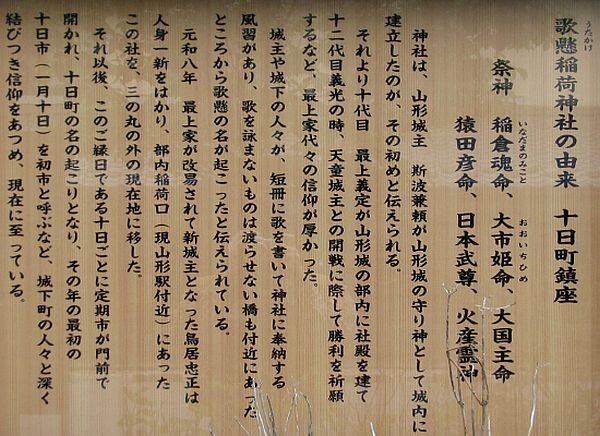 歌懸稲荷神社の由来 十日町鎮座
うたかけ
祭神 稲倉魂命、大市姫命、大国主命
いなだまのみこと おおいちひめ
猿田彦命、日本武尊、火産霊神
神社は、山形城主 斯波兼頼が山形城の守り神として城内に
建立したのが、その初めと伝えられる。
それより十代目 最上義定が山形城の部内に社殿を建て
十二代目義光の時、天童城主との開戦に際して勝利を祈願
するなど、最上家代々の信仰が厚かった。
城主や城下の人々が、短冊に歌を書いて神社に奉納する
風習があり、歌を詠まないものは渡らせない橋も付近にあった
ところから歌懸の名が起こったと伝えられている。
元和八年 最上家が改易されて新城主となった鳥居忠正は
人身一新をはかり、部内稲荷口(現山形駅付近)にあった
この社を、三の丸の外の現在地に移した。
それ以後、このご縁日である十日ごとに定期市が門前で
開かれ、十日町の名の起こりとなり、その年の最初の
十日市(一月十日)を初市と呼ぶなど、城下町の人々と深く
結びつき信仰をあつめ、現在に至っている。